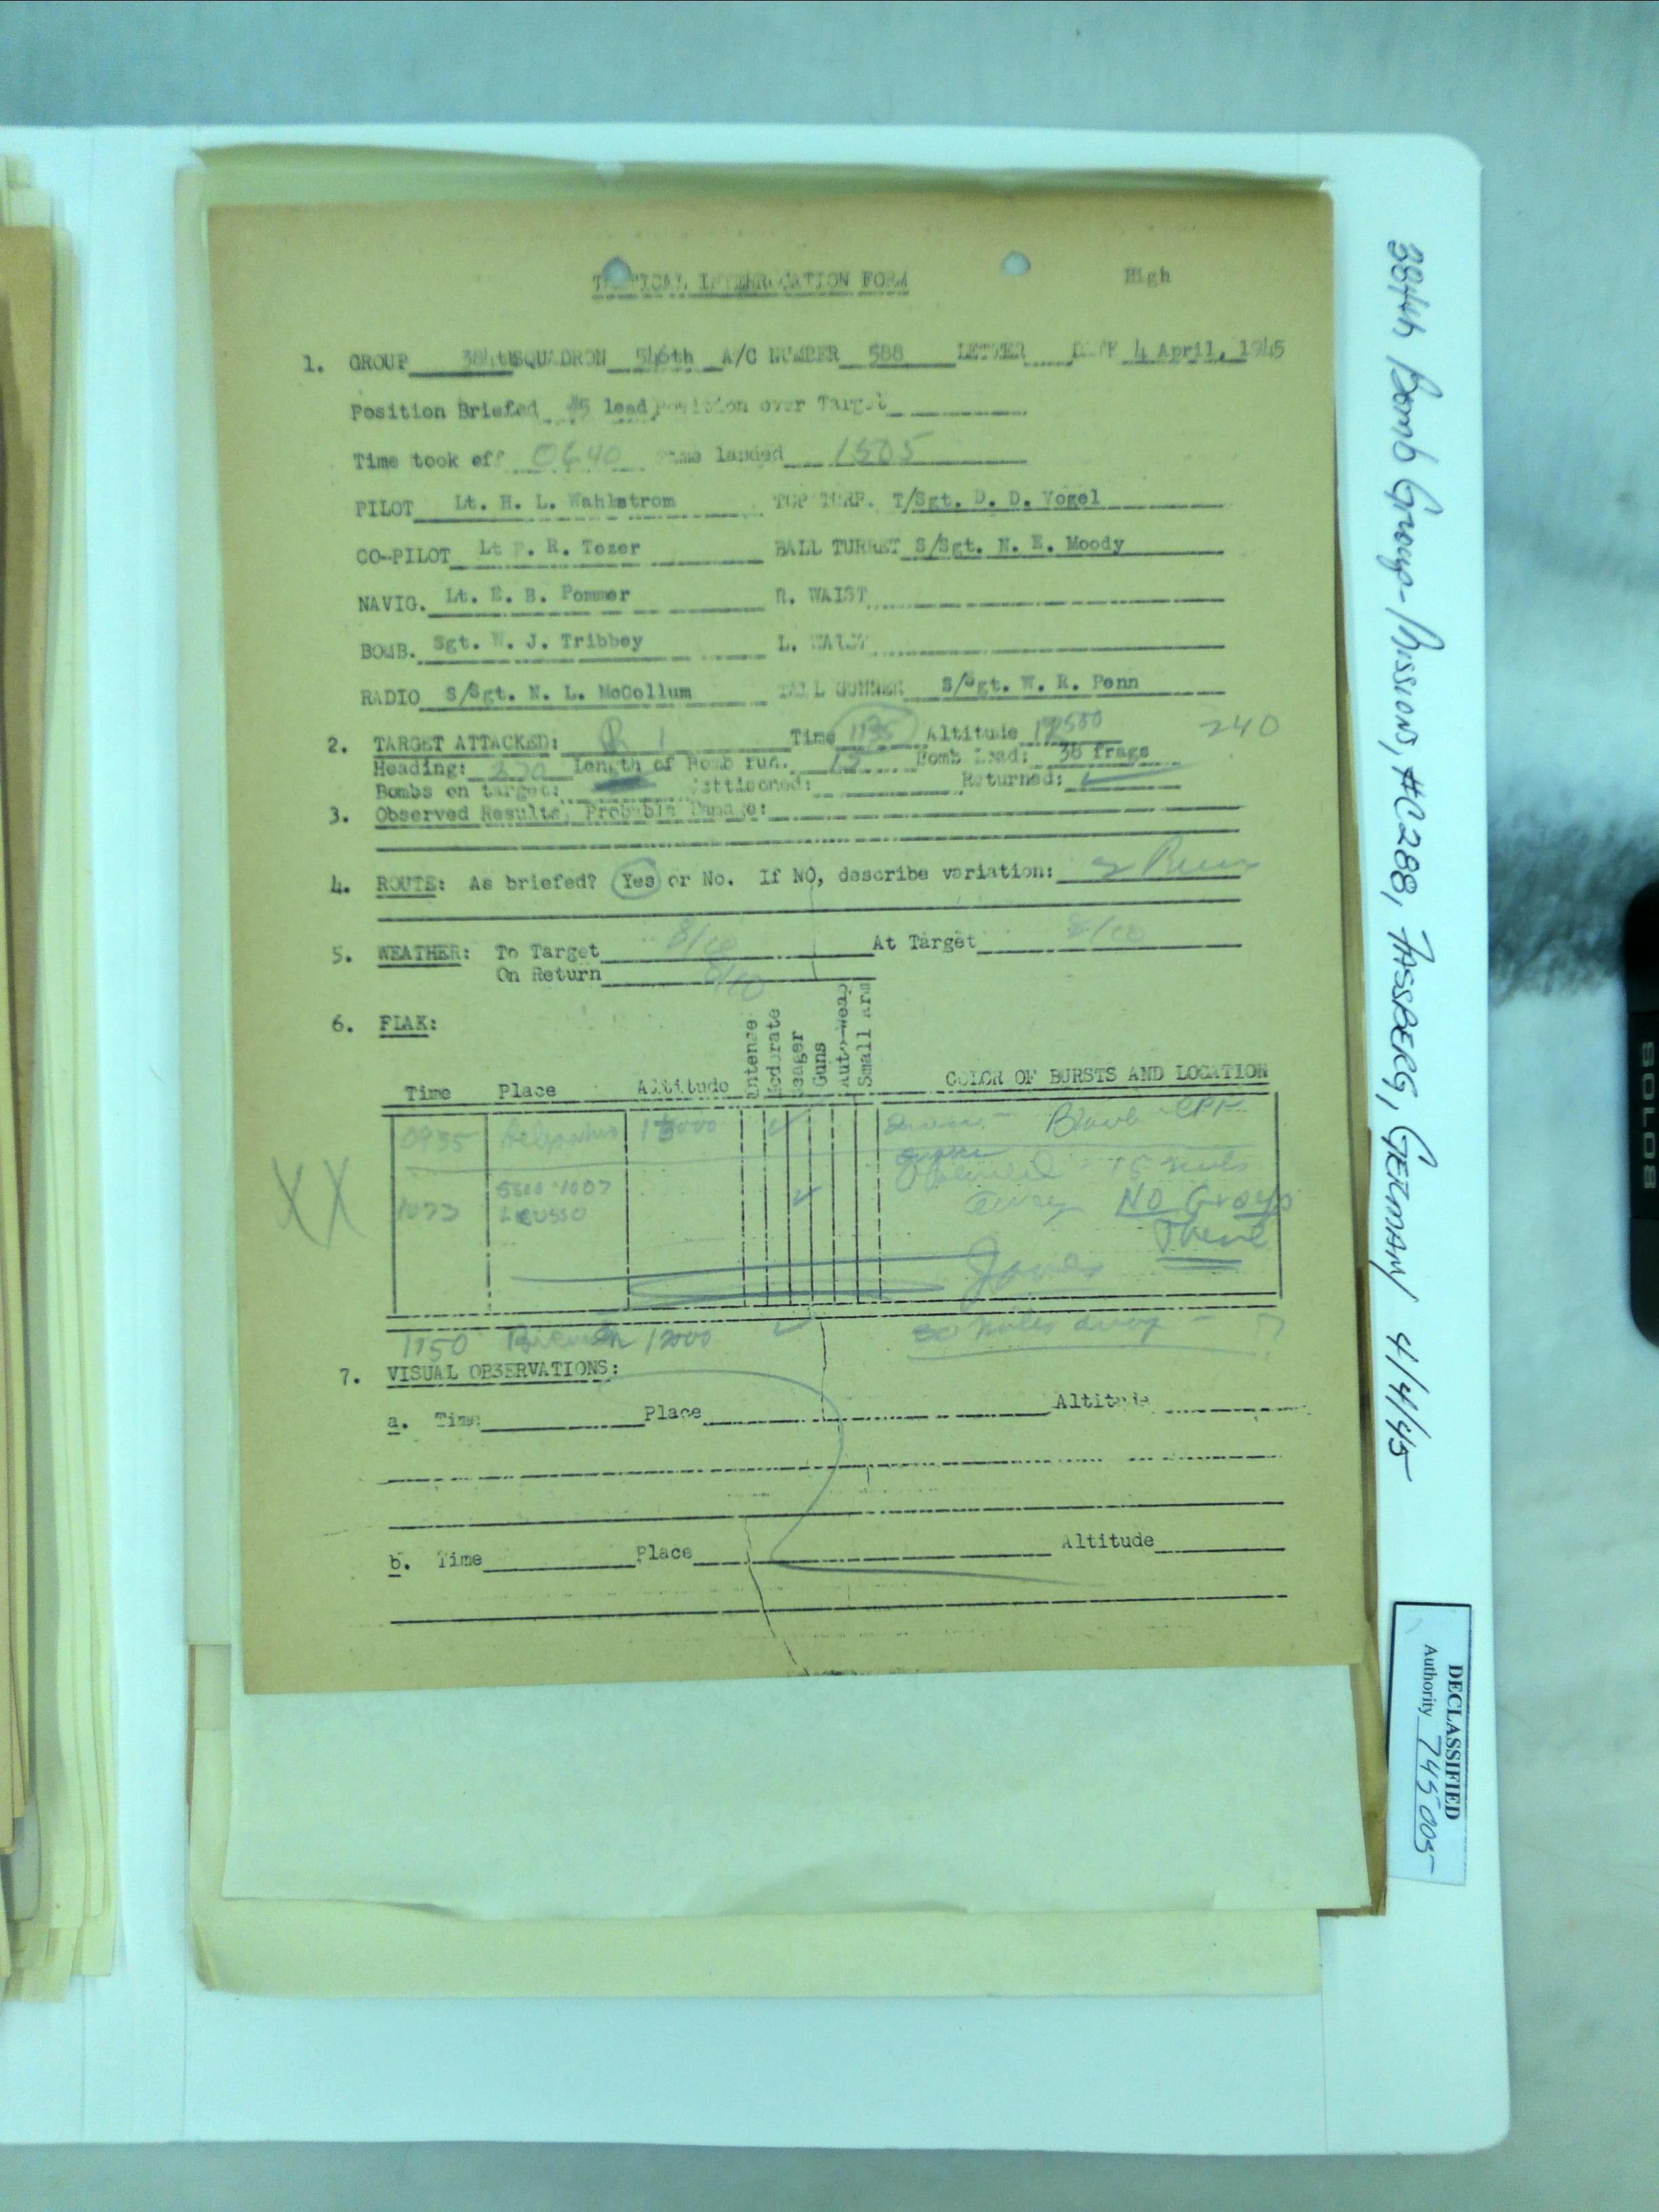 TACTICAL INTERROGATION FORM High
1. GROUP 384th SQUADRON 546th A/C NUMBER 588 LETTER DATE 4 April, 1945
Position Briefed #5 lead Position over Target
Time took off 0640 Time landed 1505
PILOT Lt. H. L. Wahlstrom TOP TURR. T/Sgt. D. D. Vogel
CO-PILOT Lt R. Tozer BALL TURRET S/Sgt. N. E. Moody
NAVIG. Lt. E. B. Pommer R. WAIST
BOMB. Sgt. W. J. Tribbey L. WAIST
RADIO S/Sgt. N. L. McCollum TAIL GUNNER S/Sgt. W. R. Penn
2. TARGET ATTACKED: Time 1135 Altitude 12500 240
Heading: Length of Bomb run. 12 Bomb Load: 38 frags
Bombs on target: Jettisoned: Returned: ✓
3. Observed Results, Probable Damage:
4. ROUTE: As briefed? Yes or No. If NO, describe variation:
5. WEATHER: To Target 8/10 At Target 8/10
On Return
6. FLAK:
Time Place Altitude Intense Moderate Meager Guns Auto-Weap Small arm COLOR OF BURSTS AND LOCATION
0935 ✓
XX
✓ away No Groups
There
Jones
1150 12000 ✓ miles away
7. VISUAL OBSERVATIONS:
a. Time Place Altitude
b. Time Place Altitude
384th Bomb Group-Missions, #C288, FASSBERG, GERMANY 4/4/45
DECLASSIFIED
Authority 745005
SOLOS